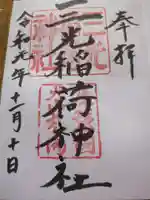 奉拝
三光稲荷神社
令和元年十一月十日